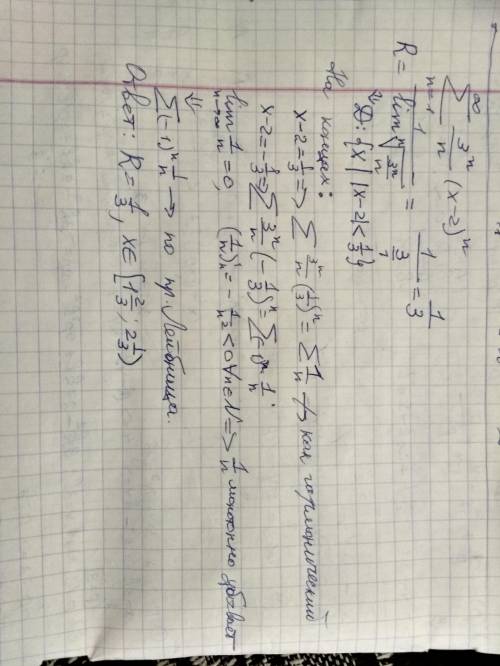 ∑_{n=1}^{∞} 3ⁿ/n (x-2)ⁿ
R = 1/(lim ⁿ√(3ⁿ/n)) = 1/(3/1) = 1/3
D: {x | |x-2| < 1/3}
На концах:
x-2 = 1/3 => ∑ 3ⁿ/n (1/3)ⁿ = ∑ 1/n ↛ как гармонический
x-2 = -1/3 => ∑ 3ⁿ/n (-1/3)ⁿ = ∑ (-1)ⁿ 1/n.
lim_{n→∞} 1/n = 0, (1/n)'ₙ = -1/n² < 0 ∀n∈N => 1/n монотонно убывает
⇓
∑ (-1)ⁿ 1/n → по пр. Лейбница.
Ответ: R = 1/3, x∈[1 2/3; 2 1/3)